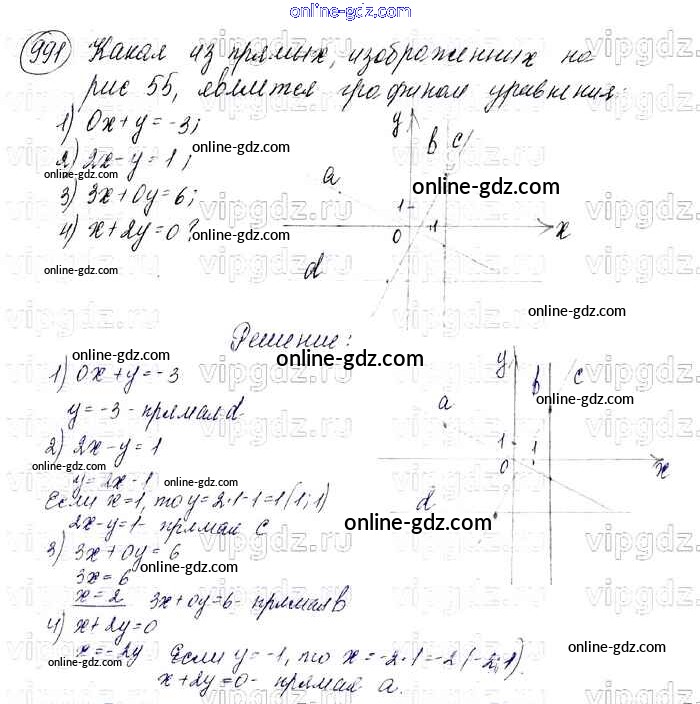 online-gdz.com
991 Какая из прямых, изображенных на
рис 55, является графиком уравнения:
1) 0x+y=-3;
2) 2x-y=1;
3) 3x+0y=6;
4) x+2y=0?
online-gdz.com
online-gdz.com
online-gdz.com
online-gdz.com
online-gdz.com
y
b
c
a
1
0
1
x
d
online-gdz.com
Решение:
online-gdz.com
online-gdz.com
1) 0x+y=-3
y=-3 - прямая d
2) 2x-y=1
y=2x-1
Если x=1, то y=2·1-1=1 (1;1)
2x-y=1- прямая c
3) 3x+0y=6
3x=6
x=2 3x+0y=6- прямая b
4) x+2y=0
x=-2y Если y=-1, то x=-2·1=-2 (-2;1)
x+2y=0- прямая a.
y
b
c
a
1
0
1
x
d
online-gdz.com
online-gdz.com
online-gdz.com
online-gdz.com
online-gdz.com
online-gdz.com
online-gdz.com
vipgdz.ru